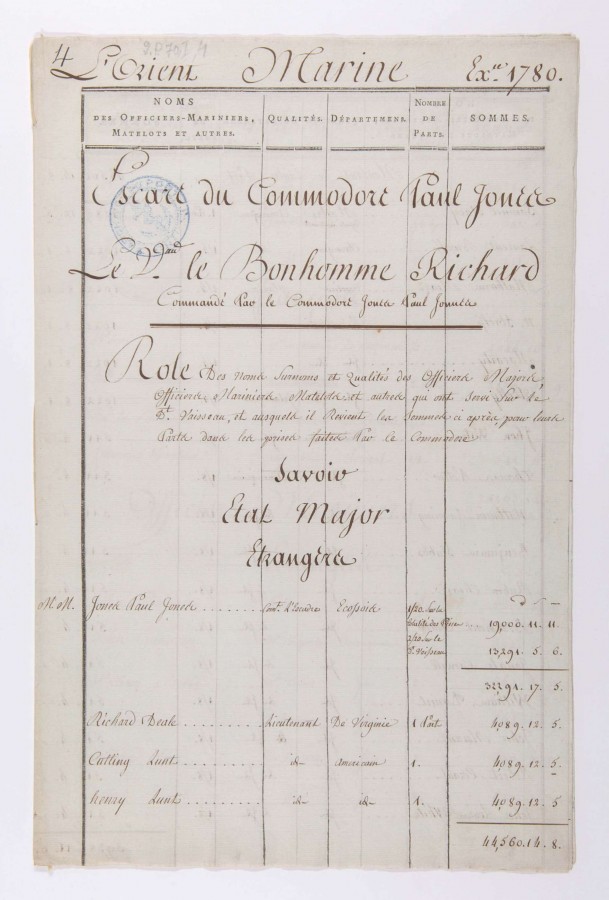 4 L'Orient Marine Ex.ce 1780.
NOMS
DES OFFICIERS-MARINIERS,
MATELOTS ET AUTRES.
QUALITÉS.
DÉPARTEMENS.
NOMBRE
DE
PARTS.
SOMMES.
Escare du Commodore Paul Jones
Le V.au le Bonhomme Richard
Commandé Par le Commodore Jones Paul Jones
Role Des noms Surnoms et Qualités des Officiers Majors,
Officiers Mariniers Matelots et autres qui ont Servi Sur le
D.t Vaisseau, et auxquels il Revient les Sommes ci après, pour leurs
Parts dans les prises faites Par le Commodore
Savoir
Etat Major
Etrangers
M. M. Jones Paul Jones Com.t L'Escadre Ecossois
1/20. Sur la
totalité des Prises 19,000. 11. 11.
2/20 Sur le
d.t Vaisseau 13291. 5. 6.
32291. 17. 5.
Richard Deale Lieutenant De Virginie 1 Part 4089. 12. 5.
Cutting Lunt id Americain 1. 4089. 12. 5.
henry Lunt id id 1. 4089. 12. 5
44,560. 14. 8.